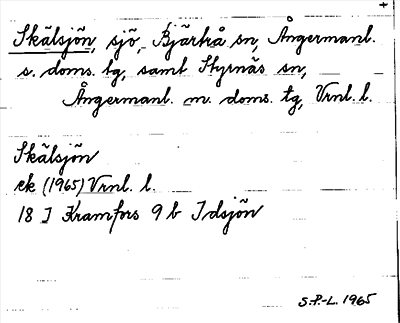 Skälsjön, sjö, Bjärtrå sn, Ångermanl.
s. doms. tg, samt Styrnäs sn,
Ångermanl. m. doms. tg, Vrnl. l.
Skälsjön
ek (1965) Vrnl. l.
18 I Kramfors 9 b Idsjön
S.P.-L. 1965